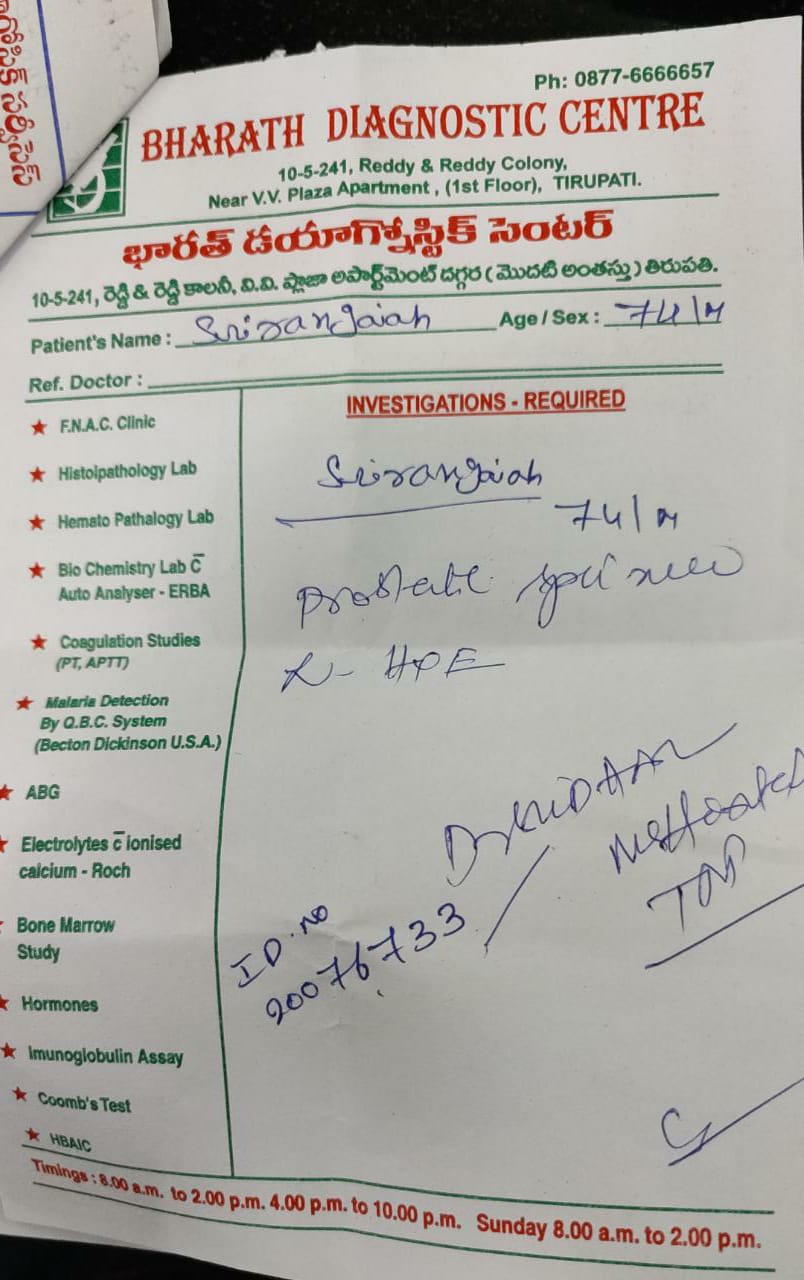 Ph: 0877-6666657
BHARATH DIAGNOSTIC CENTRE
10-5-241, Reddy & Reddy Colony,
Near V.V. Plaza Apartment , (1st Floor), TIRUPATI.
భారత్ డయాగ్నోస్టిక్ సెంటర్
10-5-241, రెడ్డి & రెడ్డి కాలనీ, వి.వి. ప్లాజా అపార్ట్‌మెంట్ దగ్గర ( మొదటి అంతస్తు ) తిరుపతి.
Patient's Name : Srirangaiah Age / Sex : 74/M
Ref. Doctor :
INVESTIGATIONS - REQUIRED
★ F.N.A.C. Clinic
★ Histolpathology Lab
★ Hemato Pathalogy Lab
★ Bio Chemistry Lab c̅
Auto Analyser - ERBA
★ Coagulation Studies
(PT, APTT)
★ Malaria Detection
By Q.B.C. System
(Becton Dickinson U.S.A.)
★ ABG
★ Electrolytes c̅ ionised
calcium - Roch
Bone Marrow
Study
★ Hormones
★ Imunoglobulin Assay
★ Coomb's Test
★ HBAIC
Srirangaiah
74/M
Prostate specimen
HPE
ID. no
20076733
Timings : 8.00 a.m. to 2.00 p.m. 4.00 p.m. to 10.00 p.m. Sunday 8.00 a.m. to 2.00 p.m.